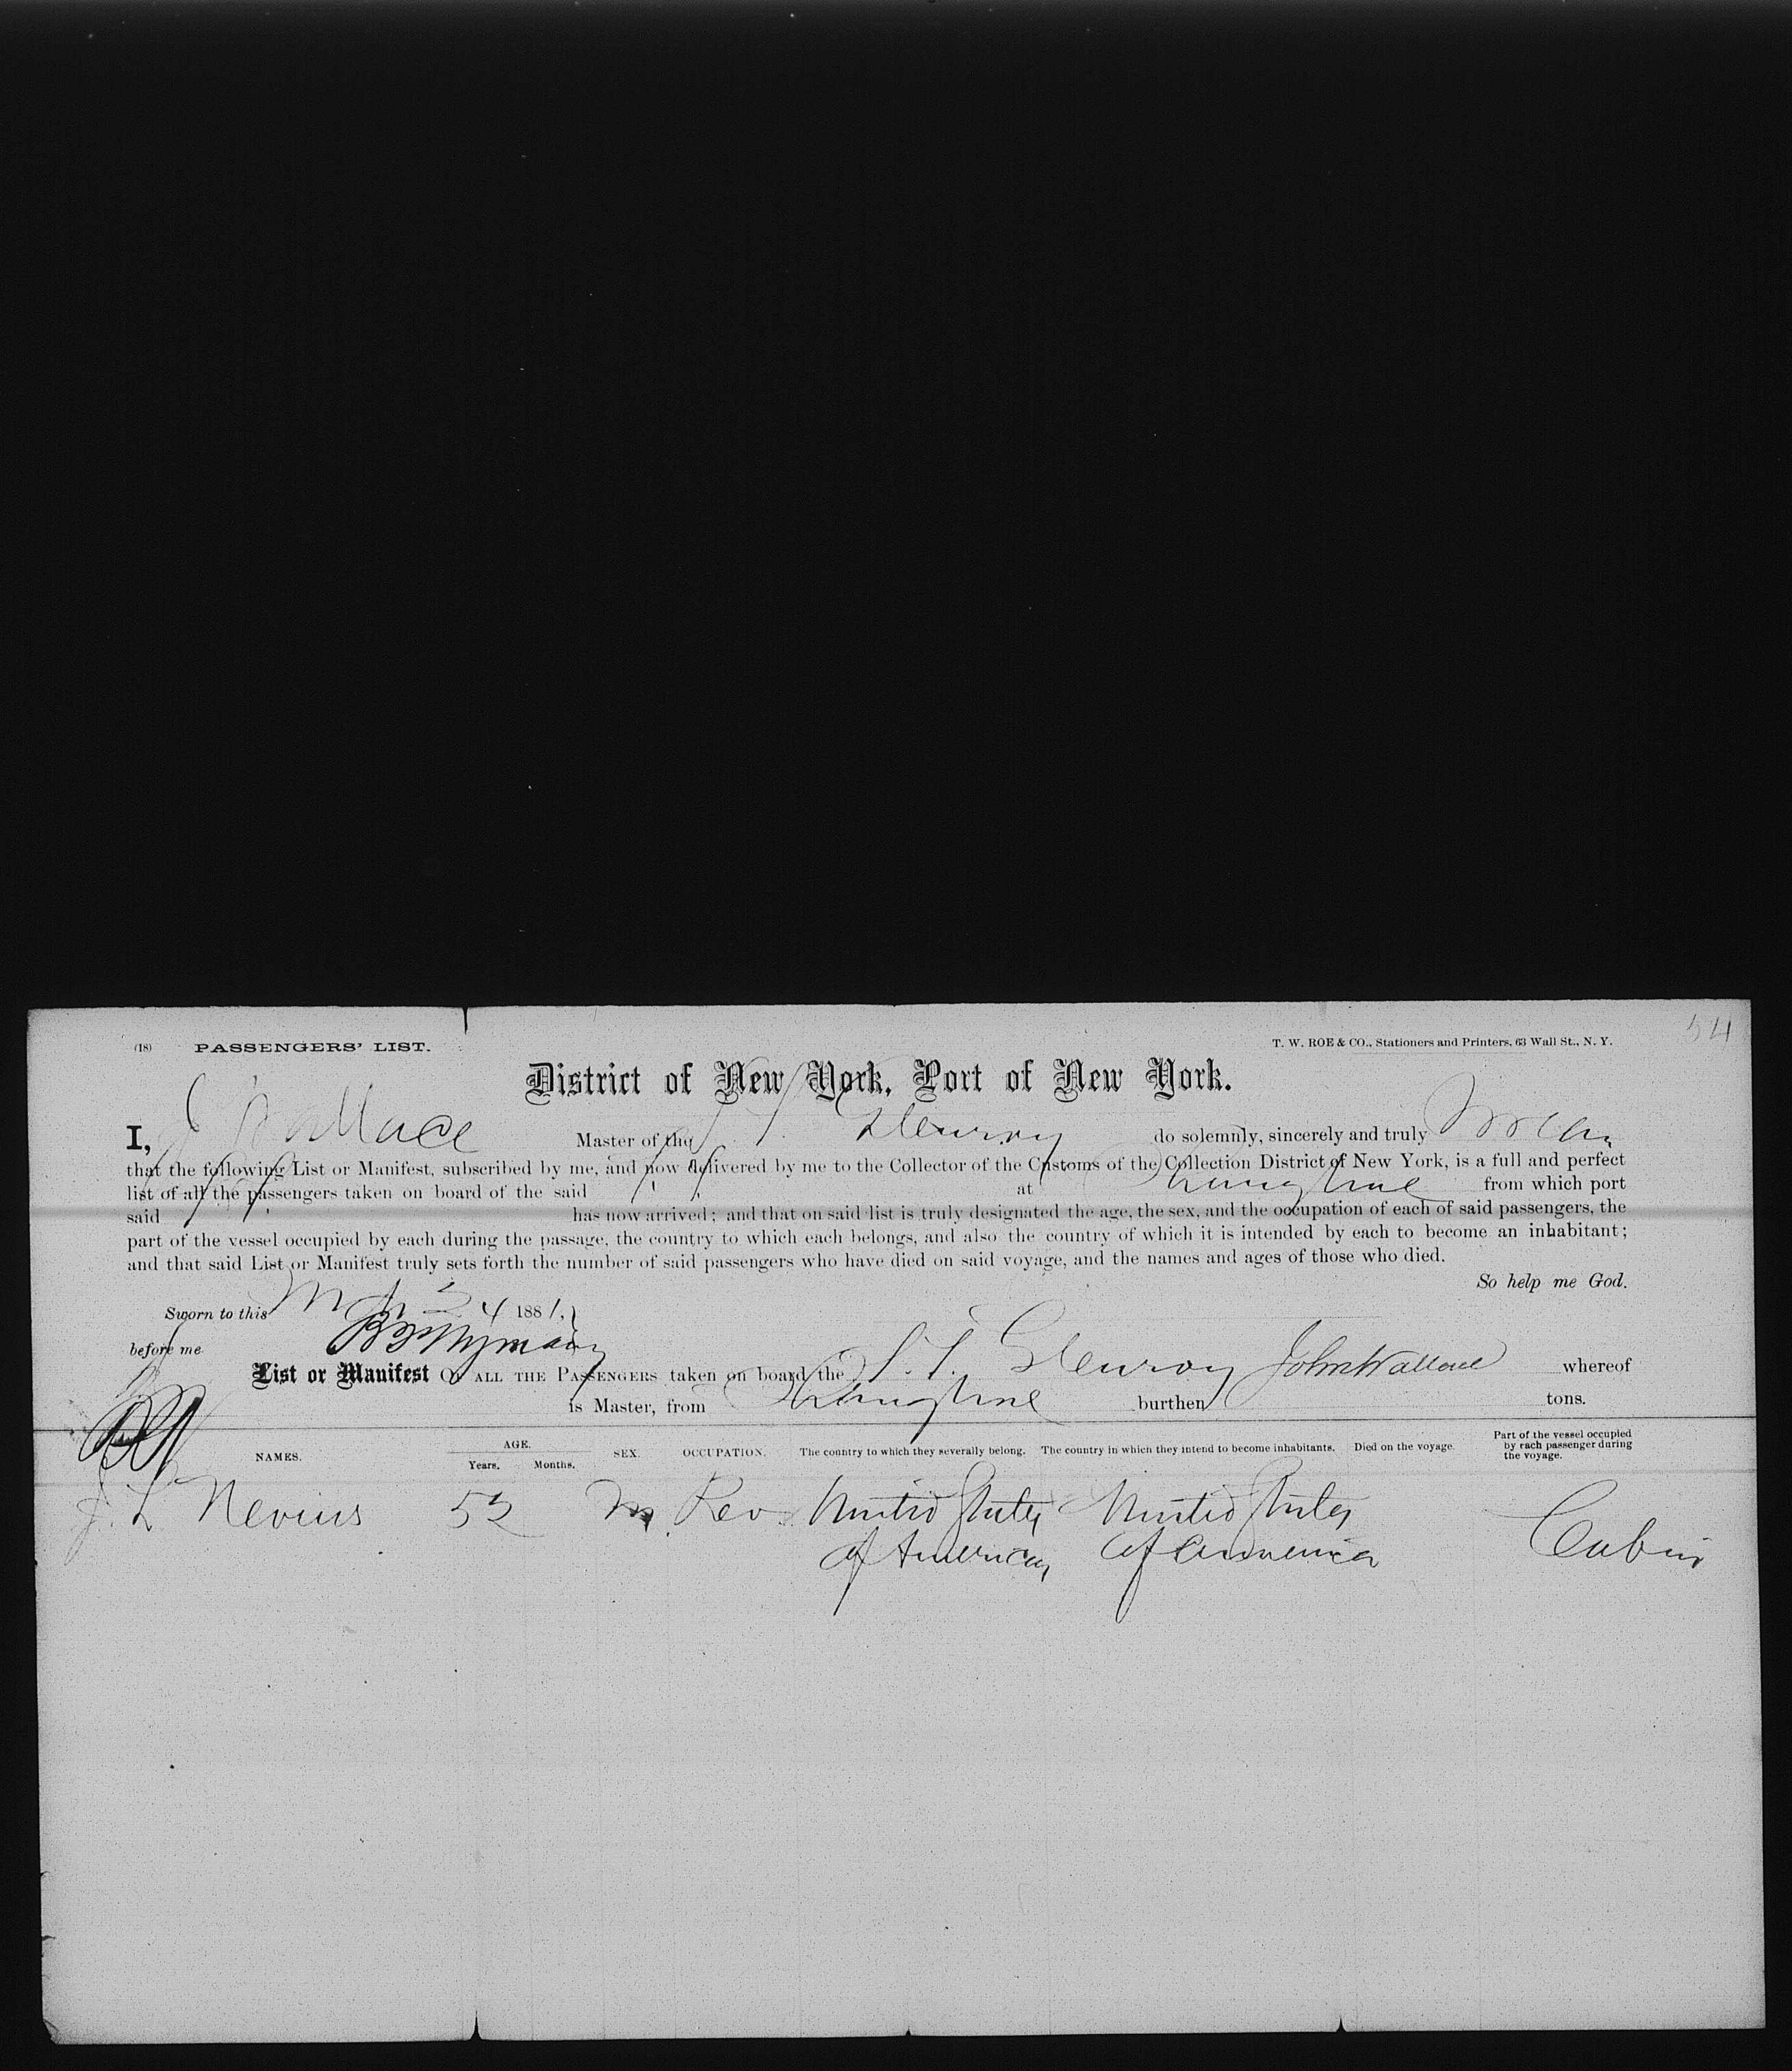 54
(18) PASSENGERS' LIST. T. W. ROE & CO., Stationers and Printers, 63 Wall St., N. Y.
District of New York, Port of New York.
I, J Wallace Master of the S. S. Glenroy do solemnly, sincerely and truly
that the following List or Manifest, subscribed by me, and now delivered by me to the Collector of the Customs of the Collection District of New York, is a full and perfect
list of all the passengers taken on board of the said S. S. at from which port
said S. S. has now arrived; and that on said list is truly designated the age, the sex, and the occupation of each of said passengers, the
part of the vessel occupied by each during the passage, the country to which each belongs, and also the country of which it is intended by each to become an inhabitant;
and that said List or Manifest truly sets forth the number of said passengers who have died on said voyage, and the names and ages of those who died.
So help me God.
Sworn to this 1881,
before me
List or Manifest OF ALL THE PASSENGERS taken on board the S. S. Glenroy John Wallace whereof
is Master, from burthen tons.
NAMES. AGE. Years. Months. SEX. OCCUPATION. The country to which they severally belong. The country in which they intend to become inhabitants. Died on the voyage. Part of the vessel occupied by each passenger during the voyage.
J. L Nevius 52 M. Rev United States United States Cabin
of America of America